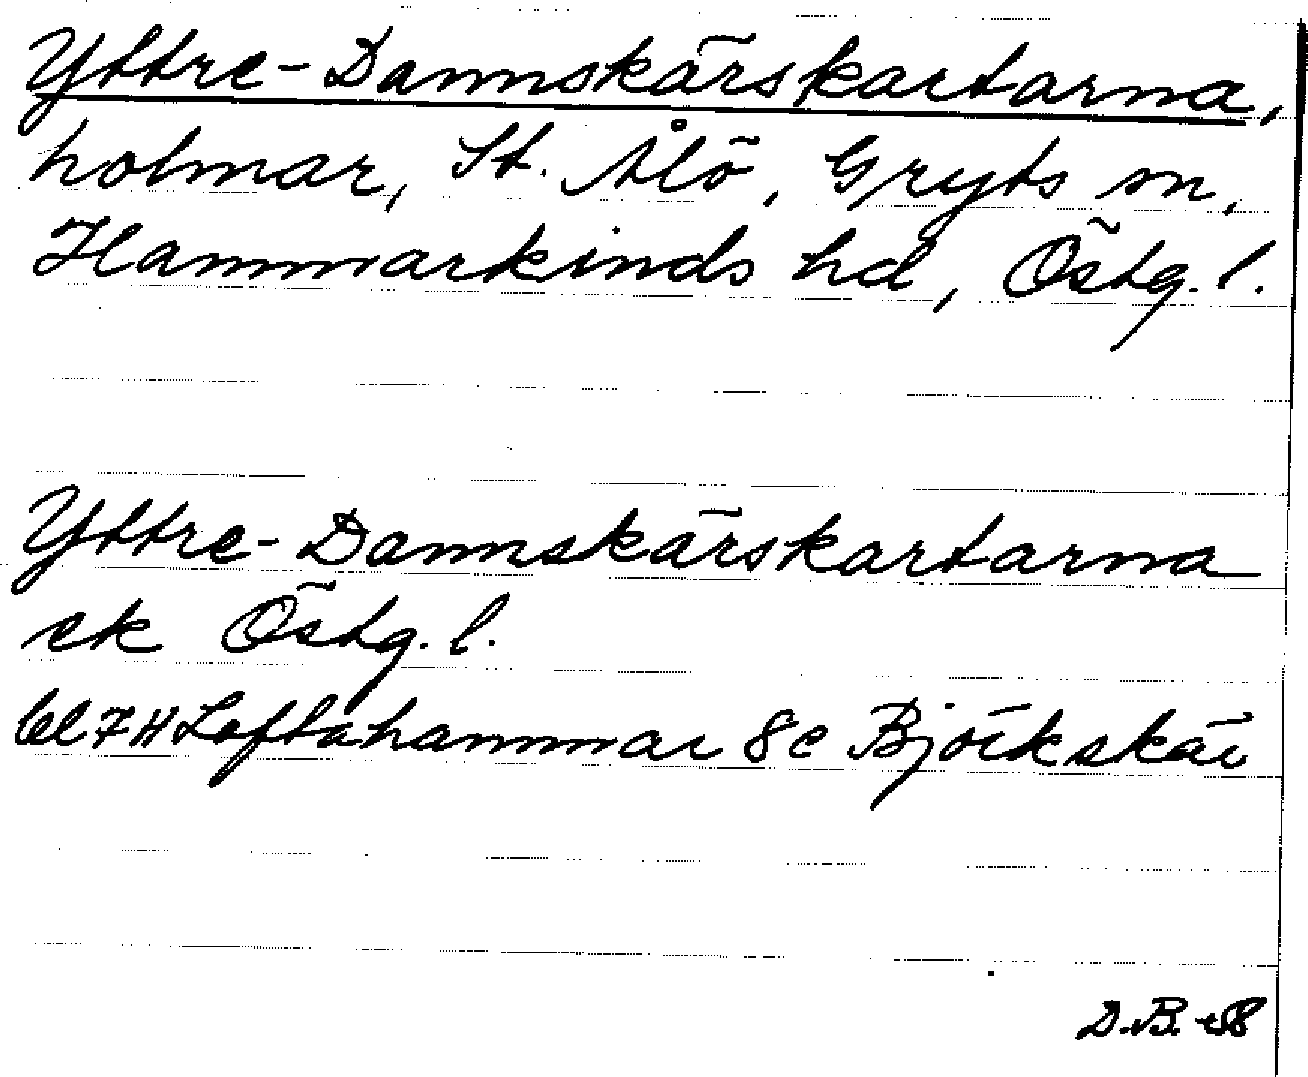 Yttre-Dannskärskartarna,
holmar, St. Ålö, Gryts sn,
Hammarkinds hd, Östg. l.
Yttre-Dannskärskartarna
ek Östg. l.
bl 7 H Loftahammar 8e Björkskär
D.B. -58